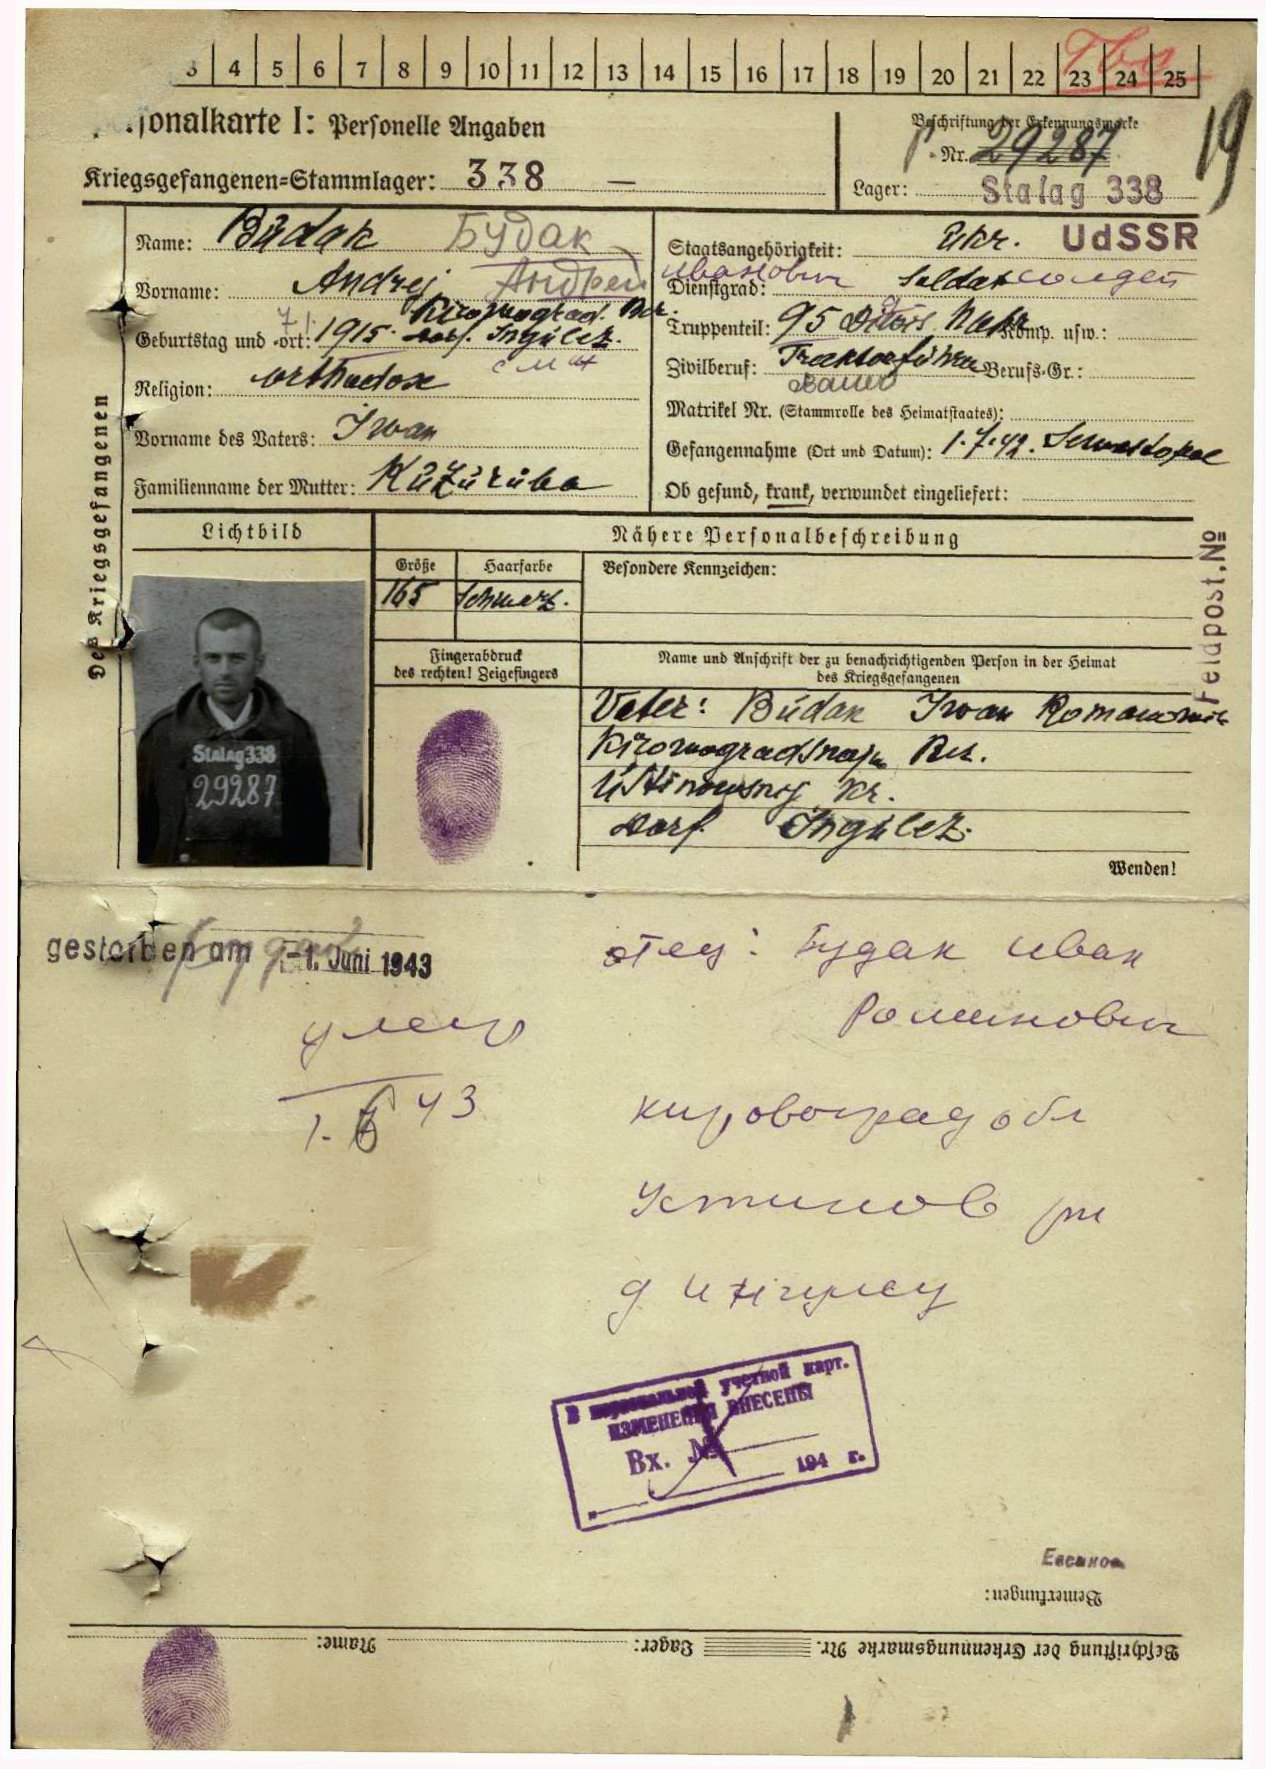 3 4 5 6 7 8 9 10 11 12 13 14 15 16 17 18 19 20 21 22 23 24 25
Tbc
19
sonalkarte I: Personelle Angaben
Kriegsgefangenen=Stammlager: 338 —
Beschriftung der Erkennungsmarke
Nr. 29287
Lager: Stalag 338
Des Kriegsgefangenen
Name: Budak Будак
Vorname: Andrej Андрей Иванович
Geburtstag und -ort: 1915. Kirowograd. Dorf. Ingulez.
Religion: orthodox
Vorname des Vaters: Iwan
Familienname der Mutter:
Staatsangehörigkeit: Ukr. UdSSR
Dienstgrad: Soldat солдат
Truppenteil: 95 Komp. usw.:
Zivilberuf: Berufs-Gr.:
Bauer
Matrikel Nr. (Stammrolle des Heimatstaates):
Gefangennahme (Ort und Datum): 1.7.42. Sewastopol
Ob gesund, krank, verwundet eingeliefert:
Lichtbild
Nähere Personalbeschreibung
Größe Haarfarbe Besondere Kennzeichen:
165 Schwarz.
Fingerabdruck
des rechten! Zeigefingers
Name und Anschrift der zu benachrichtigenden Person in der Heimat
des Kriegsgefangenen
Vater: Budak Iwan Romanowic
Kirowogradskaja
Ustinowskij Kr.
Dorf. Ingulez.
Wenden!
Feldpost.№
Stalag 338
29287
gestorben am -1. Juni 1943
Будак
умер
1. 6 43
отец: Будак Иван
Романович
кировоград обл
Устинов рн
д Ингулец
В персональной учетной карт.
ИЗМЕНЕНИЯ ВНЕСЕНЫ
Вх. №
194 г.
Bemerkungen:
Name: Lager: Beschriftung der Erkennungsmarke Nr.